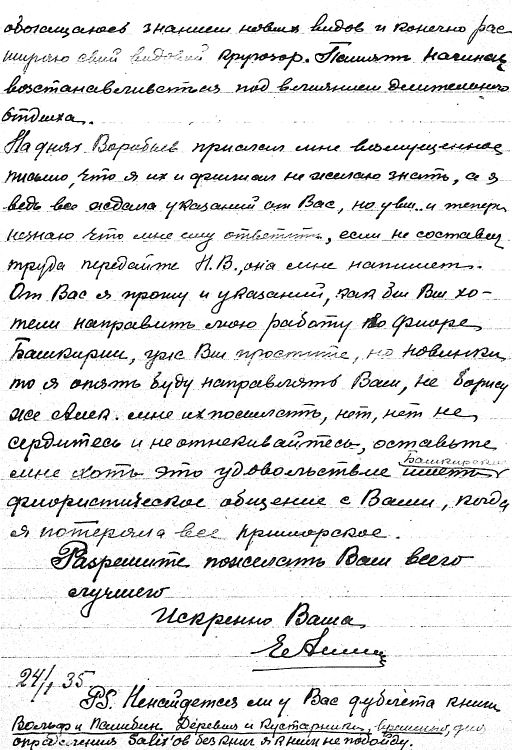 обогащаюсь знанием новых видов и конечно рас
ширяю свой видовой кругозор. Память начинает
восстанавливаться под влиянием длительного
отдыха.
На днях Воробьев прислал мне возмущенное
письмо, что я их и филиал не желаю знать, а я
ведь все ждала указаний от Вас, но увы.. и теперь
незнаю что мне ему ответить, если не составит
труда передайте Н.В., она мне напишет.
От Вас я прошу и указаний, как бы Вы хо-
тели направить мою работу по флоре
Башкирии, уж Вы простите, но новинки
то я опять буду направлять Вам, не Борису
же Алек. мне их посылать, нет, нет не
сердитесь и не отнекивайтесь, оставьте
мне хоть это удовольствие иметь Башкирское
флористическое общение с Вами, когда
я потеряла все приморское.
Разрешите пожелать Вам всего
лучшего
Искренно Ваша
24/I 35
PS. Ненайдется ли у Вас дублета книги
Вольф и Палибин Деревья и кустарники, для
определения Salix'ов без книг я к ним не подойду.